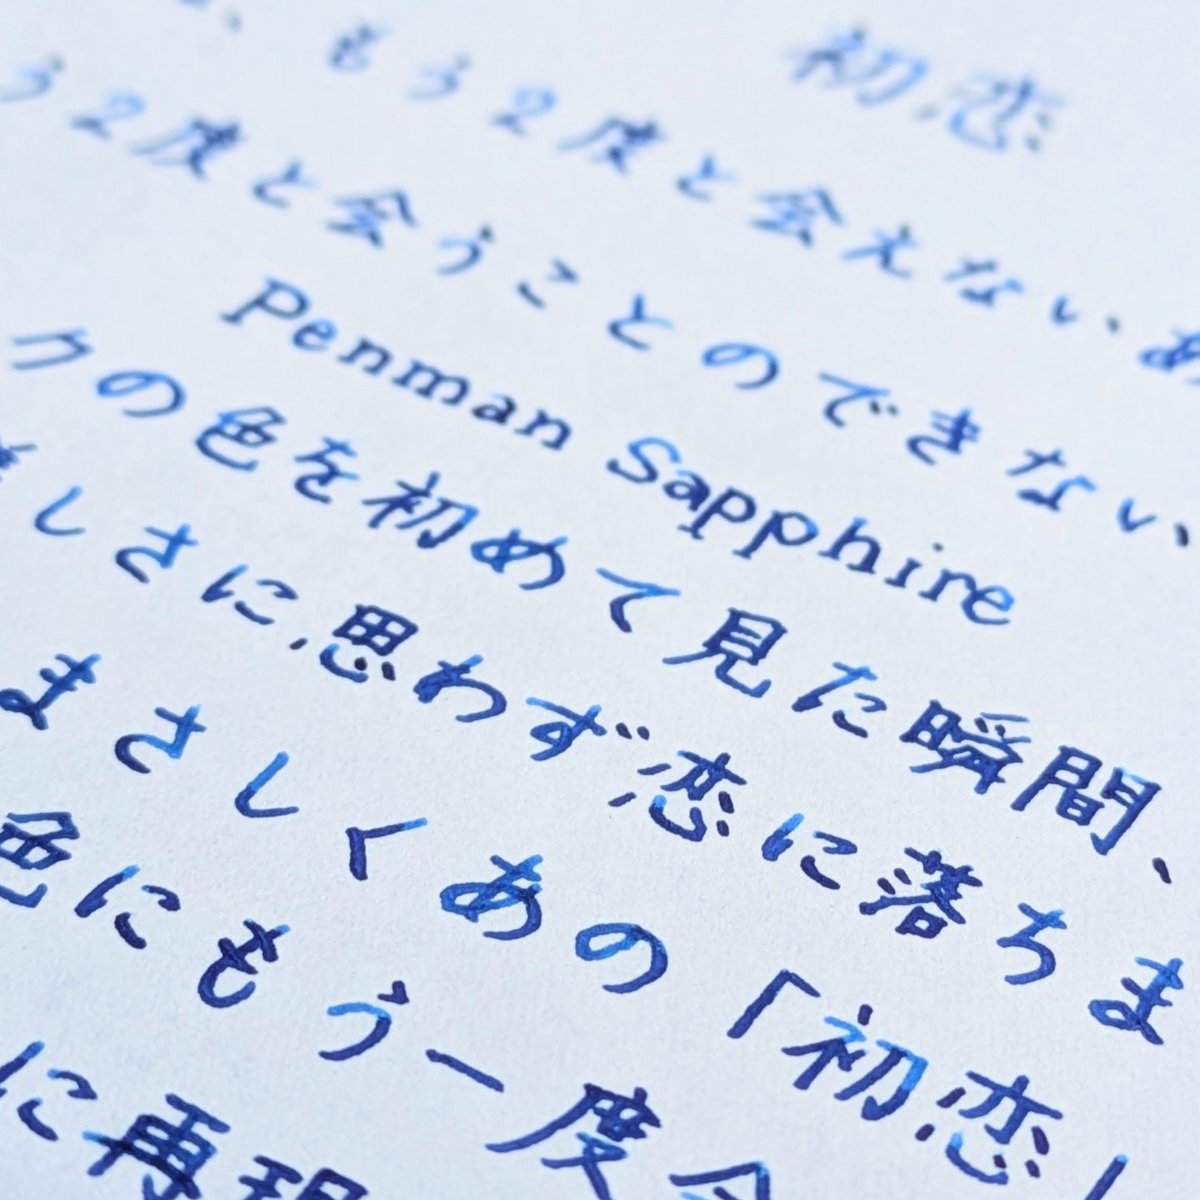 初恋
、もう2度と会えないあ
う2度と会うことのできない、
Penman Sapphire
クの色を初めて見た瞬間、
美しさに、思わず恋に落ちま
まさしくあの「初恋」
色にもう一度会
に再現